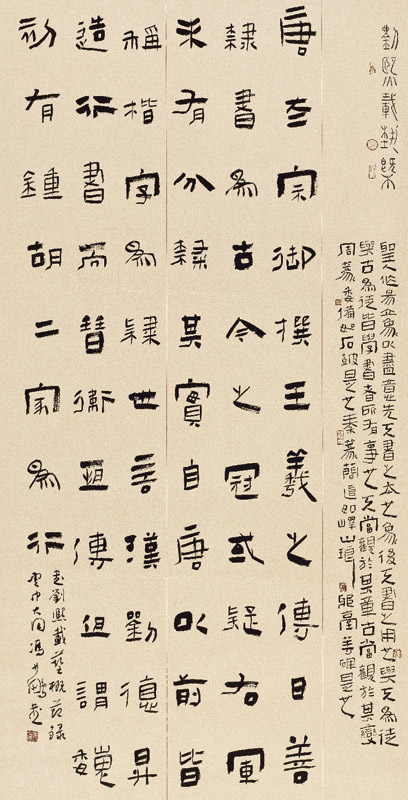 劉熙載藝概
聖人作易立象以盡意先天書之本也象後天書之用也與天為徒
與古為徒皆學書者所有事也天當觀於其章古當觀於其變
周篆委備如石鼓是也秦篆簡直如嶧山琅邪臺等碑是也
唐太宗御撰王羲之傳曰善
隸書為古今之冠或疑右軍
未有分隸其實自唐以前皆
稱楷字為隸世言漢劉德昇
造行書而晉衛恆傳但謂魏
初有鍾胡二家為行
書劉熙載藝概節錄
雲中大同馮